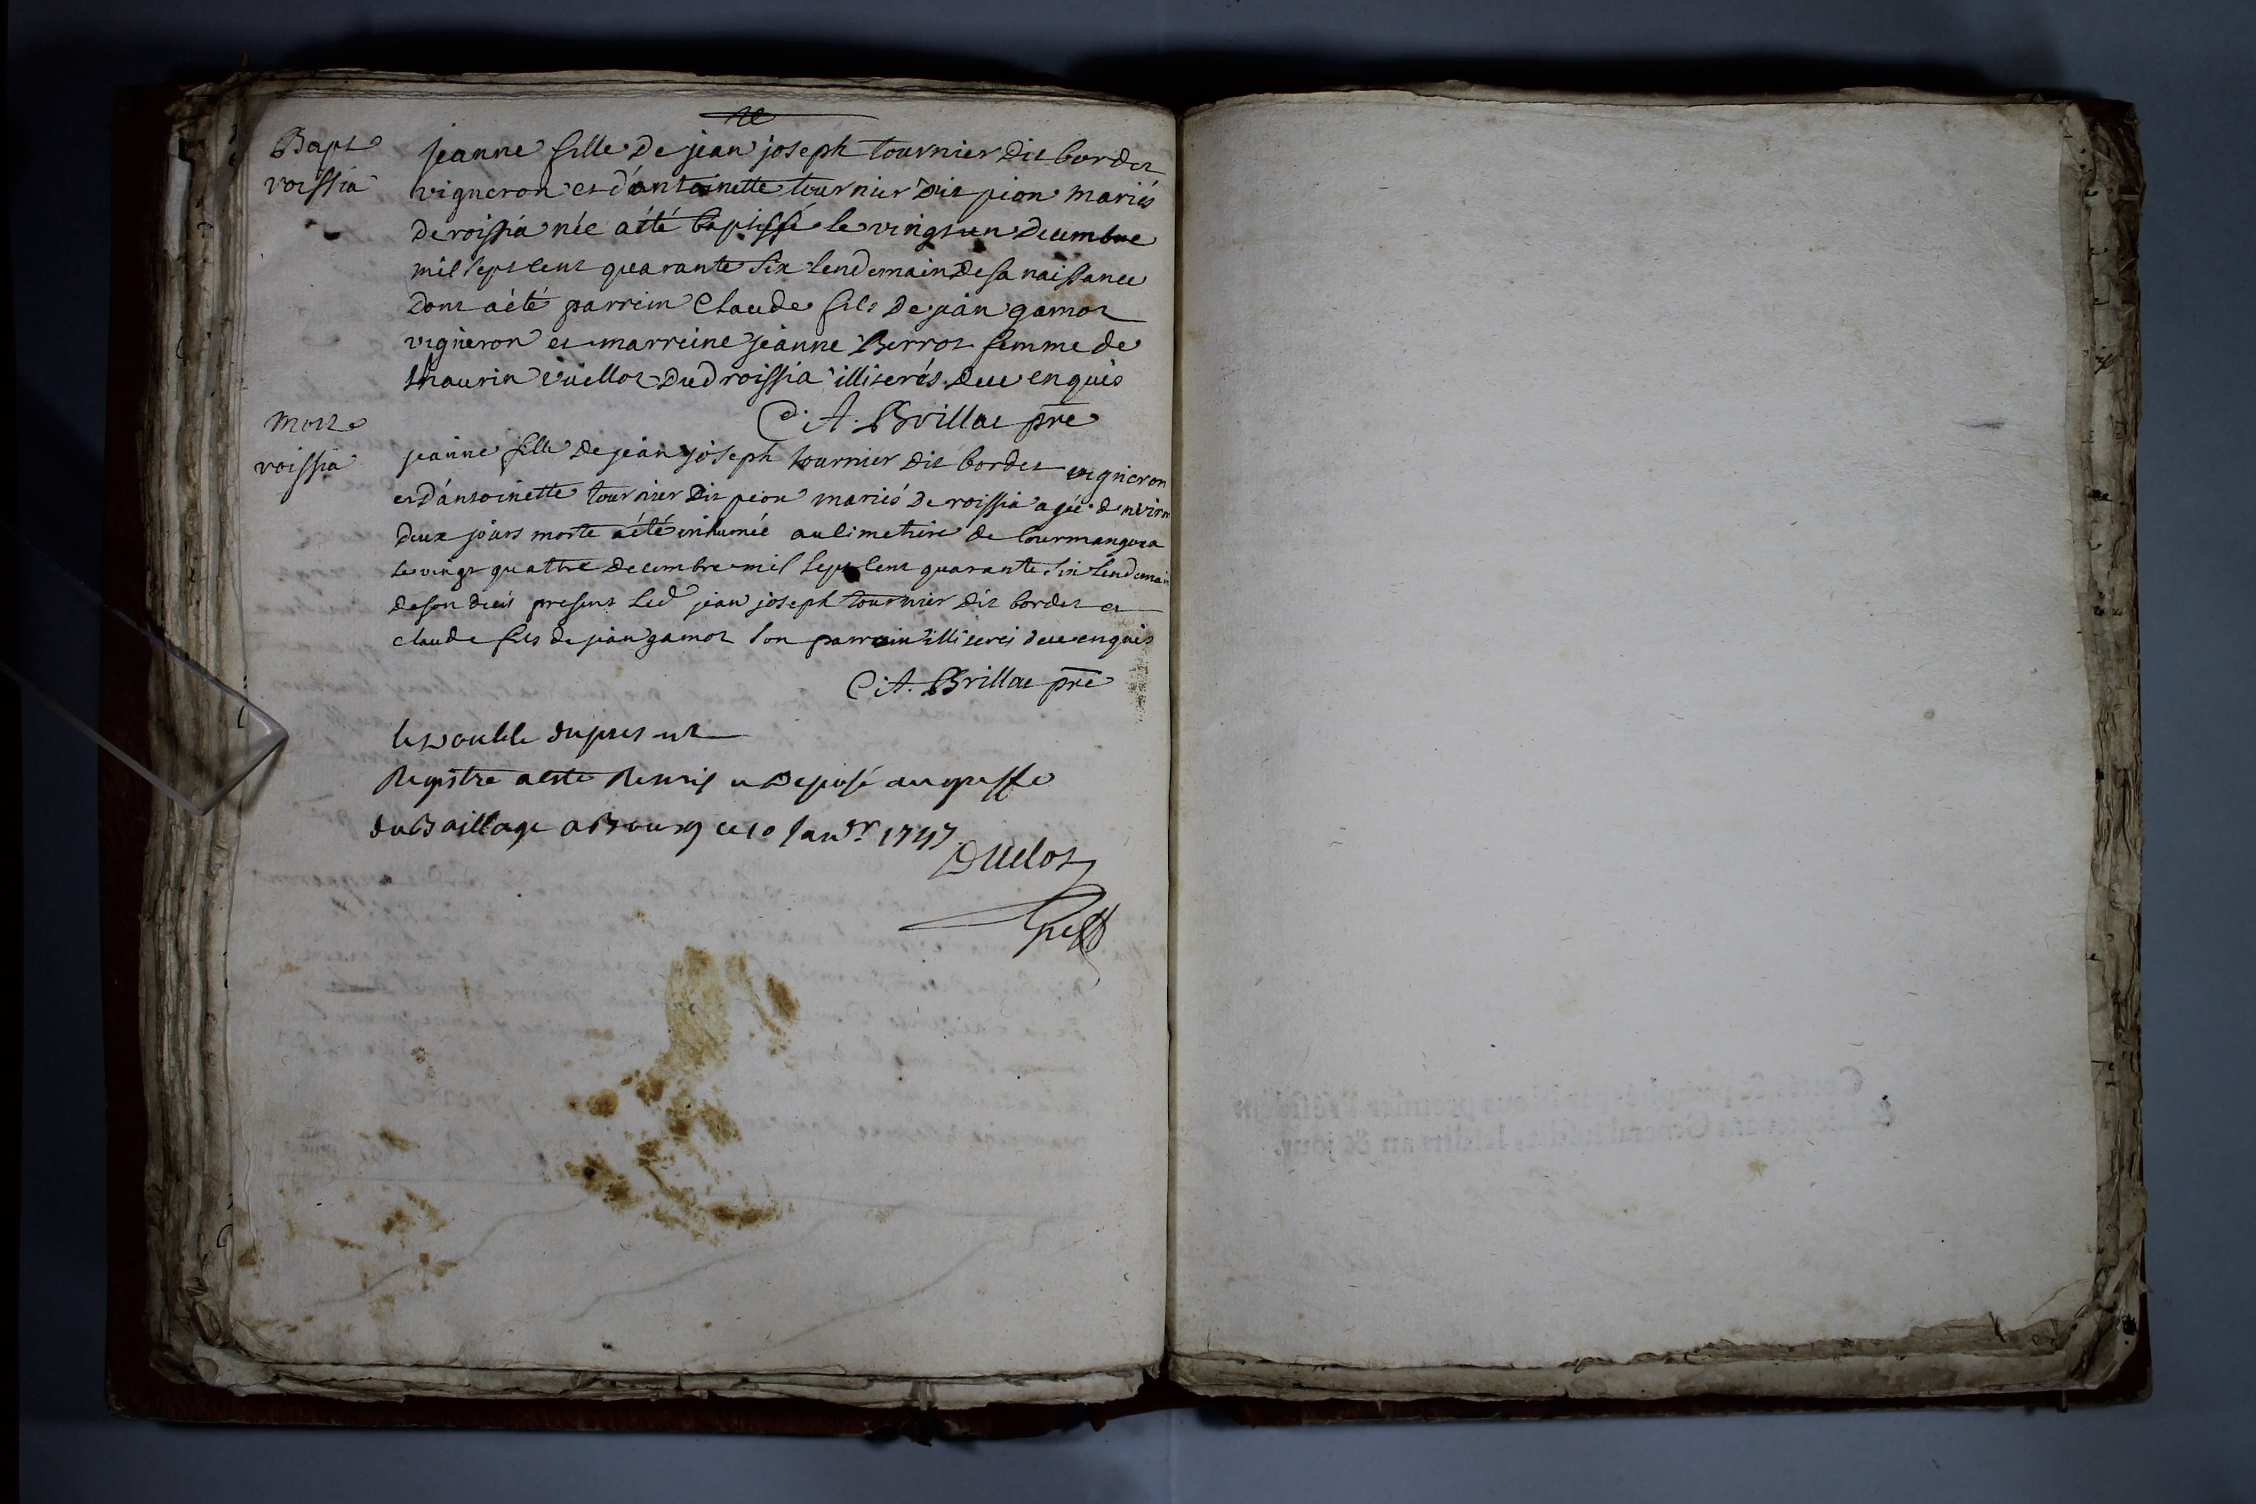 Bapt
roissia
jeanne fille de jean joseph tournier dit bordet
vigneron et d'antoinette tournier dit pion mariés
de roissia née a été baptissé le vingt un decembre
mil sept cent quarante six lendemain de sa naissance
dont a été parrein claude fils de jean gamot
vigneron et marreine jeanne Berrot femme de
maurin vuillot dud roissia illiterés de ce enquis
C. A. Brillat pre
mort
roissia
jeanne fille de jean joseph tournier dit bordet vigneron
et d'antoinette tournier dit pion mariés de roissia agée d'environ
deux jours morte a été inhumée au cimetiere de Courmangoux
le vingt quattre decembre mil sept cent quarante six lendemain
de son decés presens led jean joseph tournier dit bordet et
claude fils de jean gamot son parrain illiterés de ce enquis
C. A. Brillat pre
le double du present
Registre a esté Remis et Deposé au greffe
du Baillage a Bourg ce 10 Janvr. 1747
Duclot
Greff